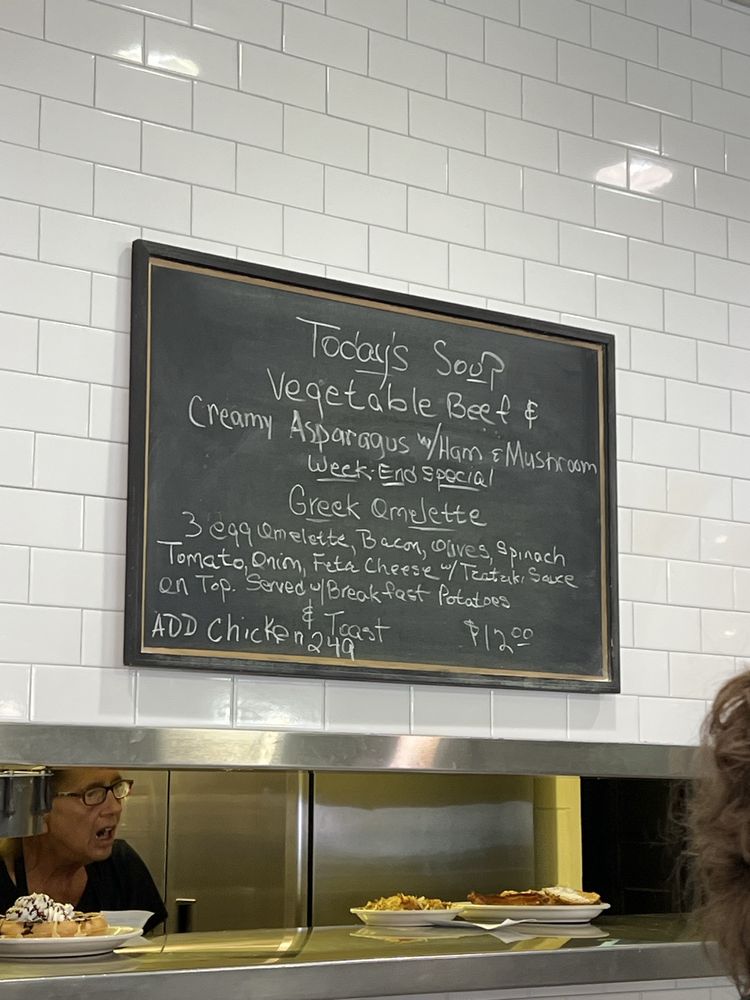 Today's Soup
Vegetable Beef &
Creamy Asparagus w/Ham & Mushroom
Week-End Special
Greek Omelette
3 egg Omelette, Bacon, Olives, Spinach
Tomato, Onion, Feta Cheese w/Tzatziki Sauce
on Top. Served w/Breakfast Potatoes
& Toast
ADD Chicken 249 $12.00